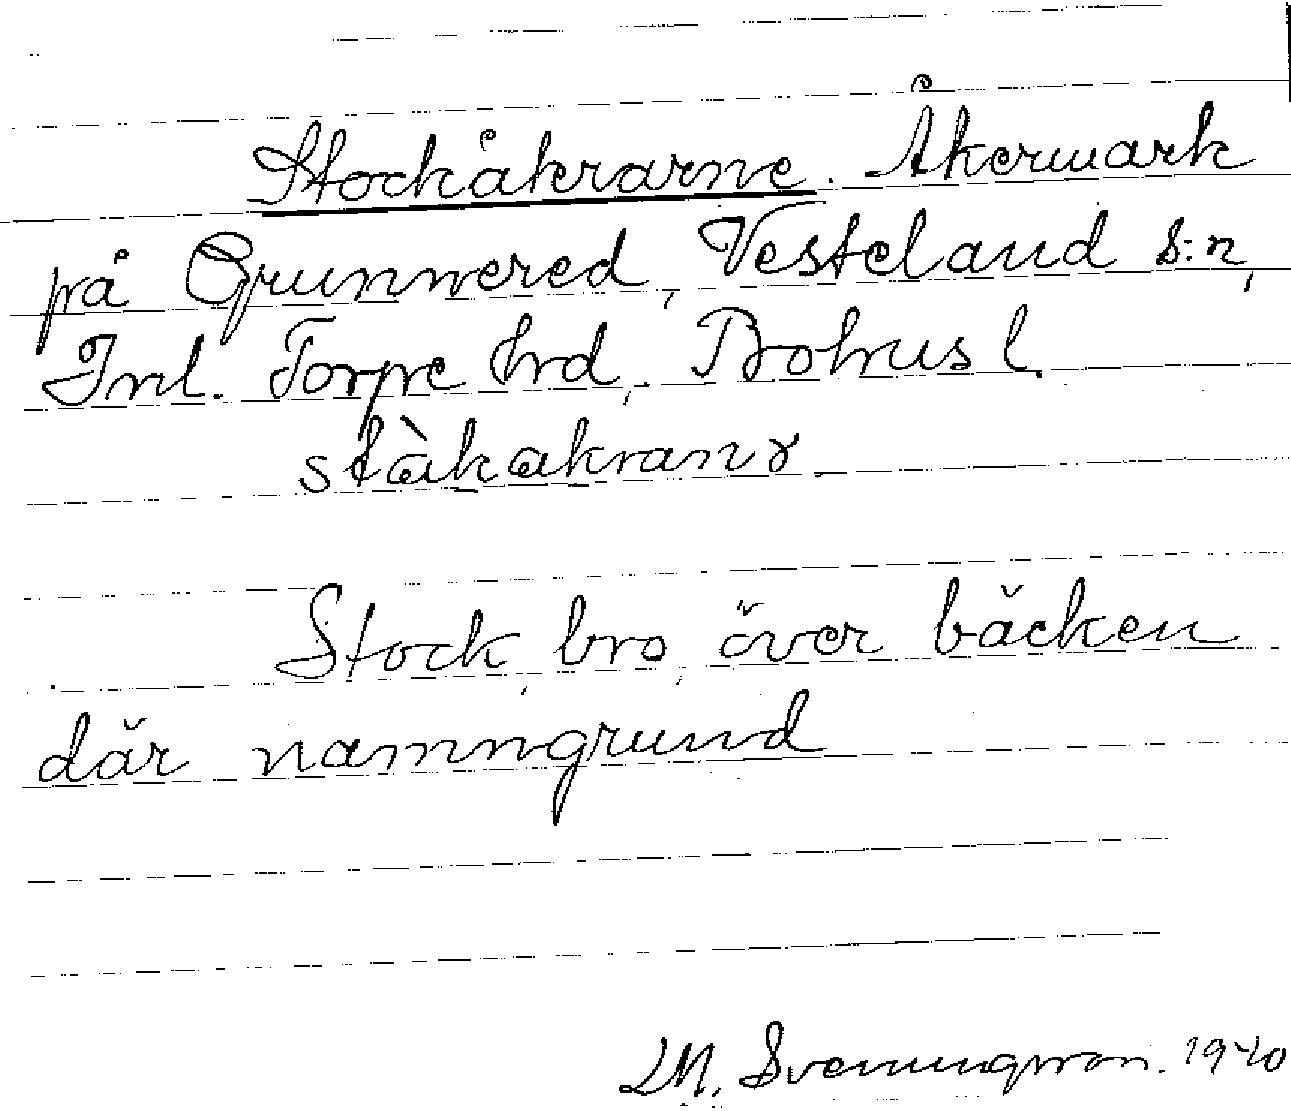 Stockåkrarne. Åkermark
på Grunnered, Vesteland s:n,
Inl. Torpe hrd, Bohusl.
stàkakranɤ
Stock, bro, över bäcken
där namngrund
LM. Svenungsson. 1940